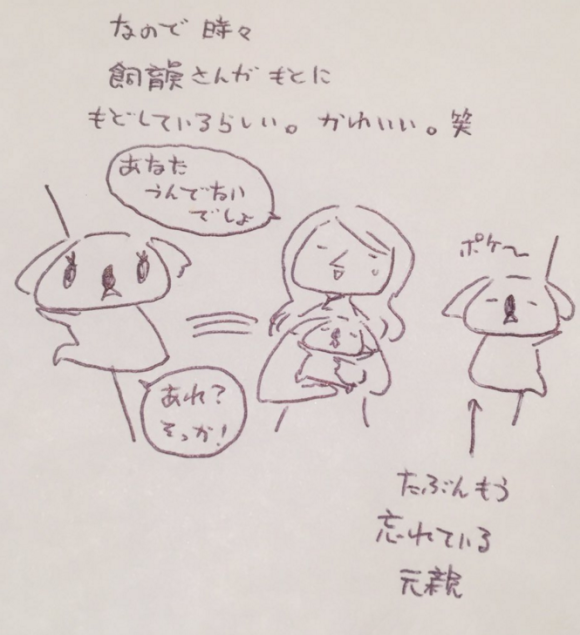 なので 時々
飼育員さんが もとに
もどしているらしい。かわいい。笑
あなた
うんでない
でしょ
ポケ〜
あれ？
そっか！
たぶんもう
忘れている
元親